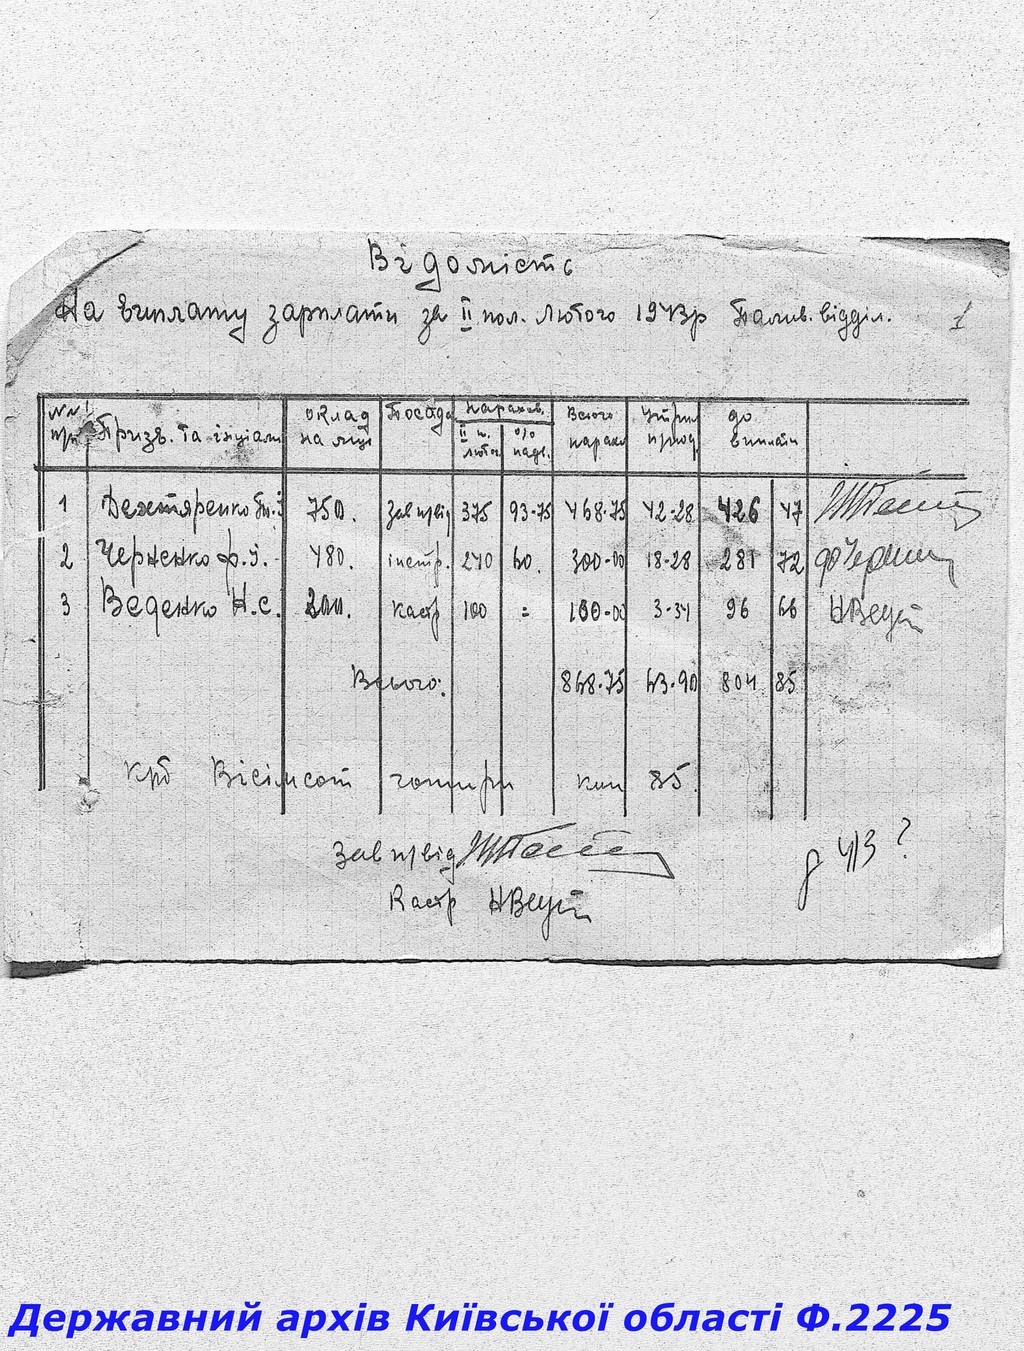 Відомість
На виплату зарплати за II пол. Лютого 1943р Палив. відділ. 1
№№ п/п Призв. та ініціали оклад на місц Посада нарахов. II п. лютог % надв. Всього нарахо Утримприод. до виплати
1 Дехтяренко 750. Зав п/від 375 93-75 468-75 42-28 426 47
2 Черненко Ф.І. 480. інстр. 240 60. 300-00 18-28 281 72
3 Веденко Н.С. 200. кастр 100 = 100-00 3-34 96 66
Всього: 868-75 63-90 804 85
Крб Вісімсот чотири коп 85.
Зав п/від
Кастр
4/3 ?
Державний архів Київської області Ф.2225